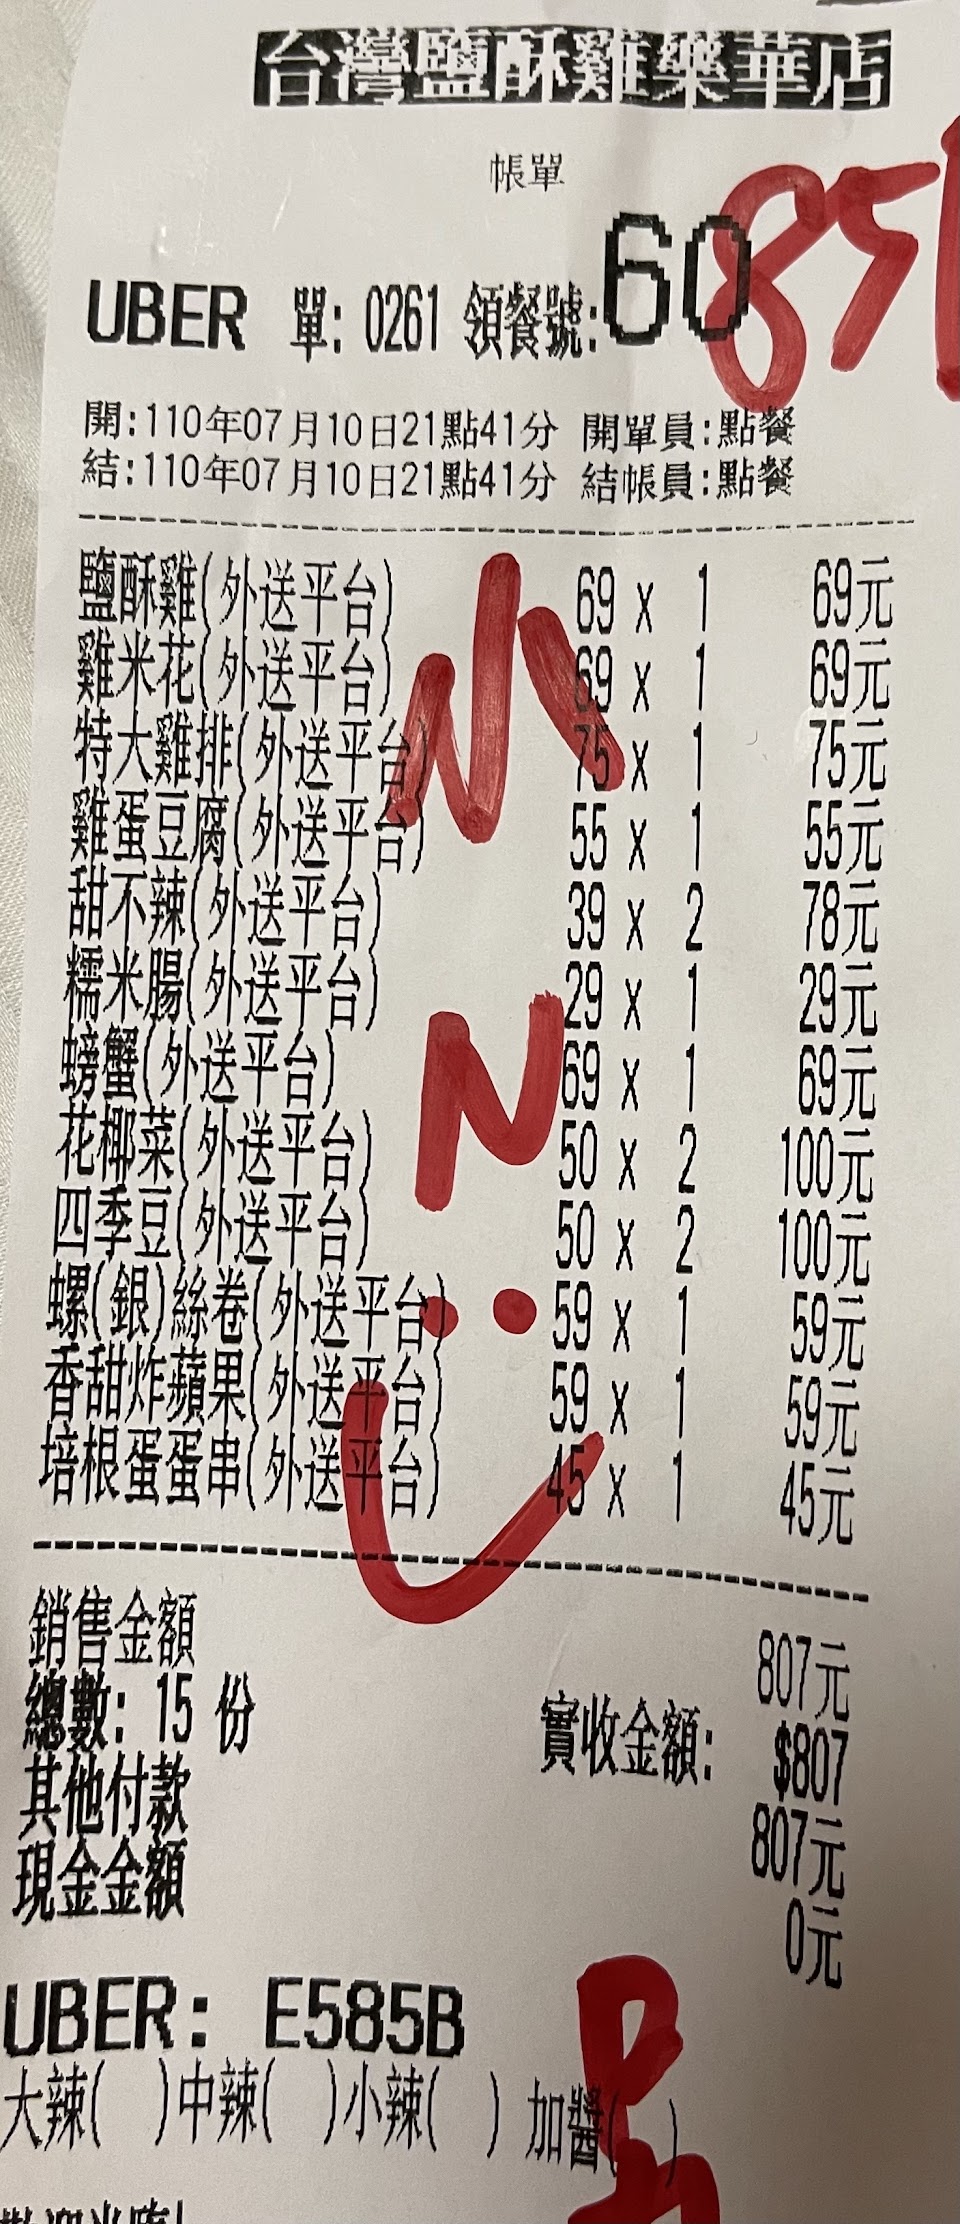 台灣鹽酥雞樂華店
帳單
85
UBER 單: 0261 領餐號:60
開:110年07月10日21點41分 開單員:點餐
結:110年07月10日21點41分 結帳員:點餐
鹽酥雞(外送平台) 69 x 1 69元
雞米花(外送平台) 69 x 1 69元
特大雞排(外送平台) 75 x 1 75元
雞蛋豆腐(外送平台) 55 x 1 55元
甜不辣(外送平台) 39 x 2 78元
糯米腸(外送平台) 29 x 1 29元
螃蟹(外送平台) 69 x 1 69元
花椰菜(外送平台) 50 x 2 100元
四季豆(外送平台) 50 x 2 100元
螺(銀)絲卷(外送平台) 59 x 1 59元
香甜炸蘋果(外送平台) 59 x 1 59元
培根蛋蛋串(外送平台) 45 x 1 45元
小
N
銷售金額 807元
總數: 15 份 實收金額: $807
其他付款 807元
現金金額 0元
UBER: E585B
大辣( )中辣( )小辣( ) 加醬( )